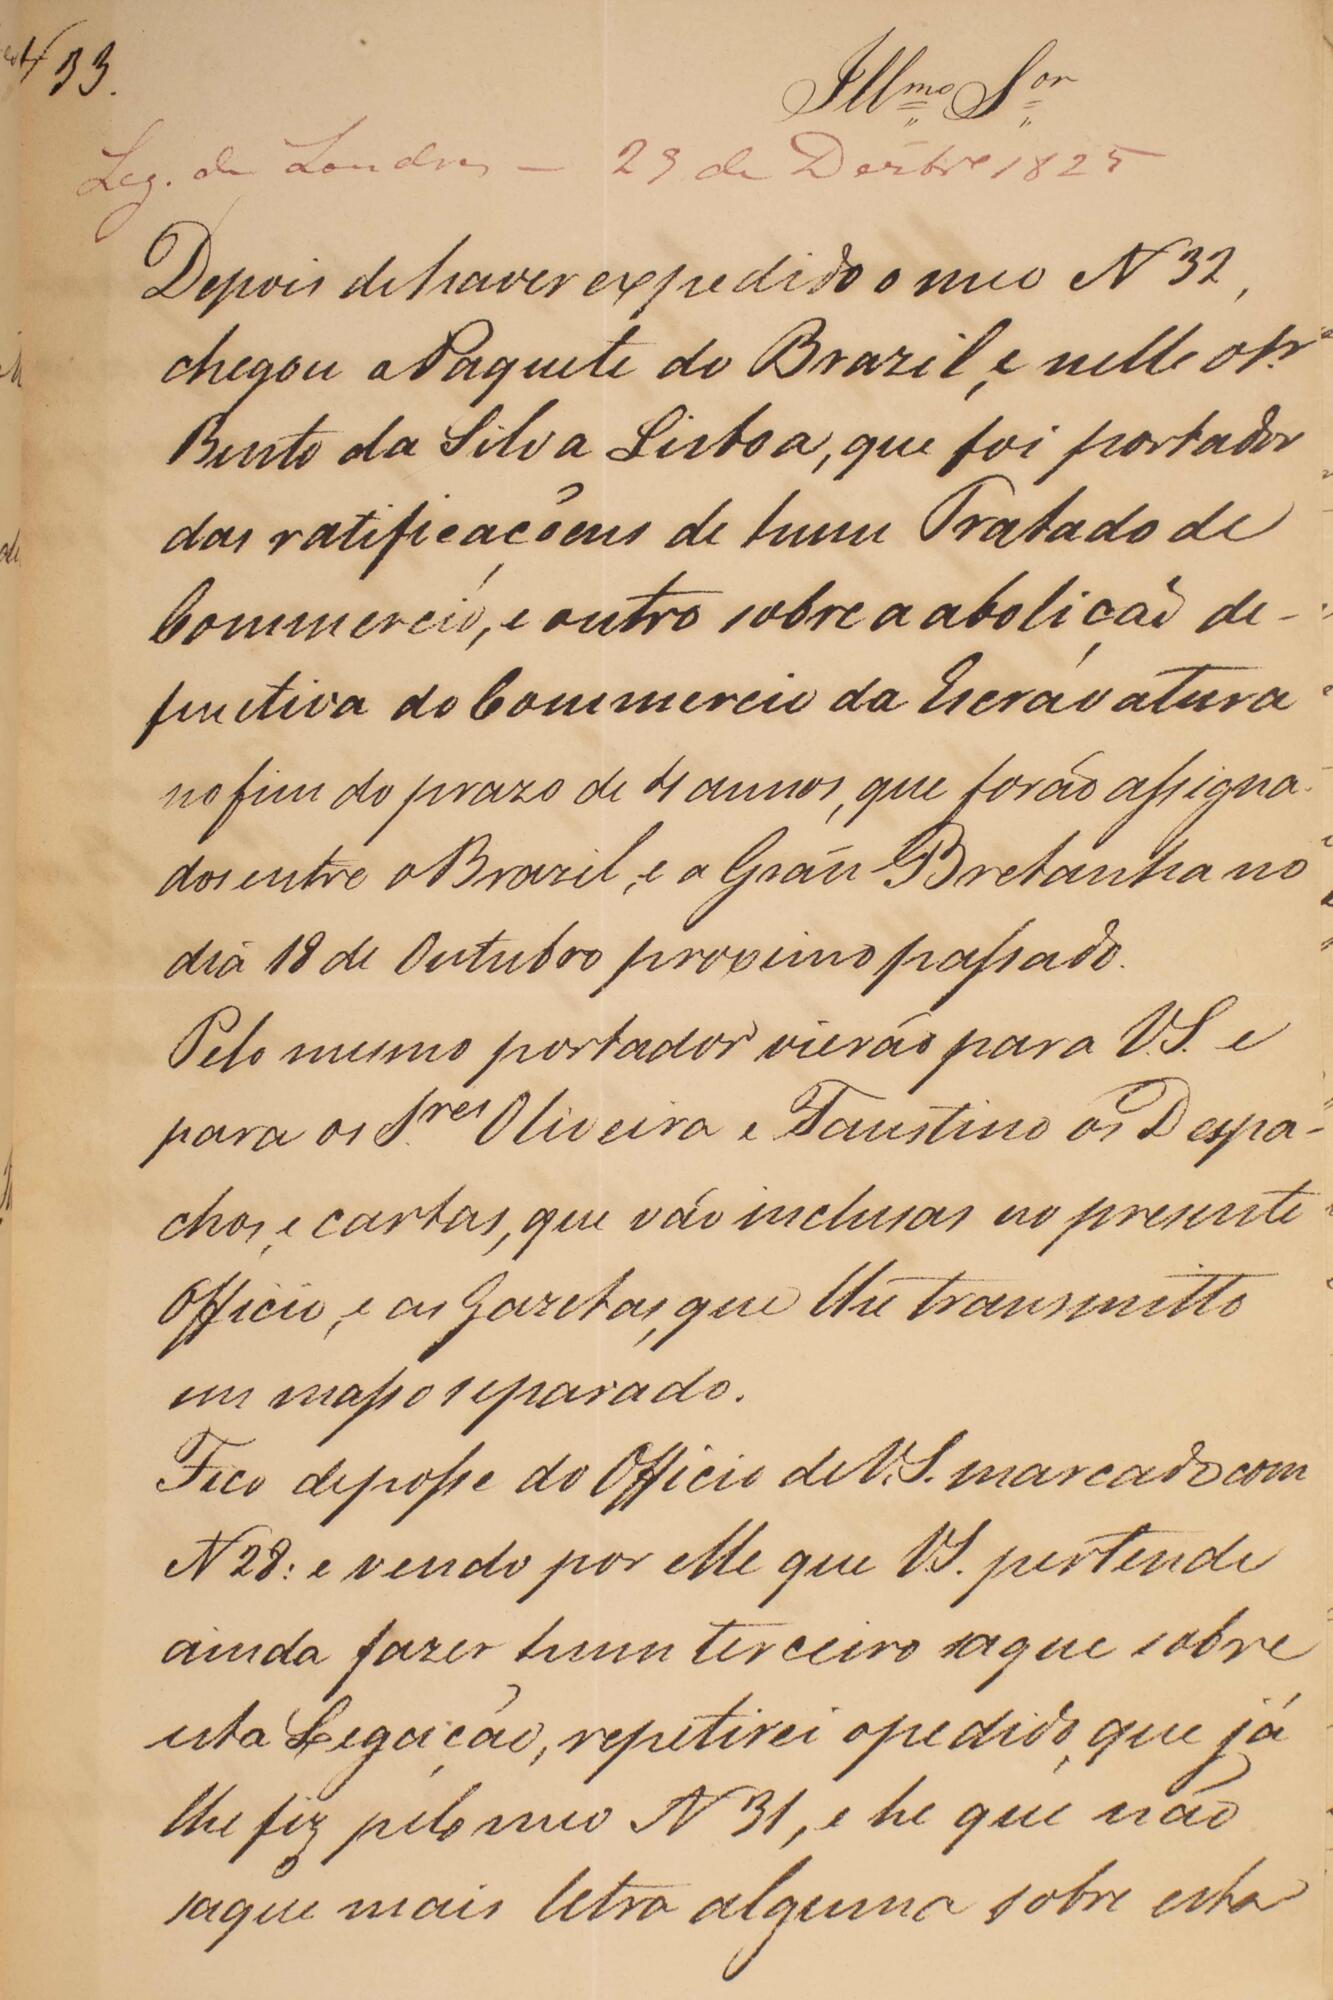 33.
Illmo Sor
Leg. de Londres — 29 de Dezbro 1825
Depois de haver expedido o meo N 32,
chegou o Paquete do Brazil, e nelle o Sr.
Bento da Silva Lisboa, que foi portador
das ratificaçõens de hum Tratado de
Commercio, e outro sobre a abolição de-
finitiva do Commercio da Escravatura
no fim do prazo de 4 annos, que forão assigna-
dos entre o Brazil, e a Grãn Bretanha no
dia 18 de Outubro proximo passado.
Pelo mesmo portador vierão para V.S. e
para os Sres Oliveira e Faustino os Despa-
chos, e cartas, que vão inclusas no presente
Officio, e as Gazetas, que lhe transmitto
em masso separado.
Fico de posse do Officio de V.S. marcado com
N 28: e vendo por elle que V.S. pertende
ainda fazer hum terceiro saque sobre
esta Legação, repetirei o pedido, que já
lhe fiz pelo meo N 31, e he que não
saque mais letra alguma sobre esta